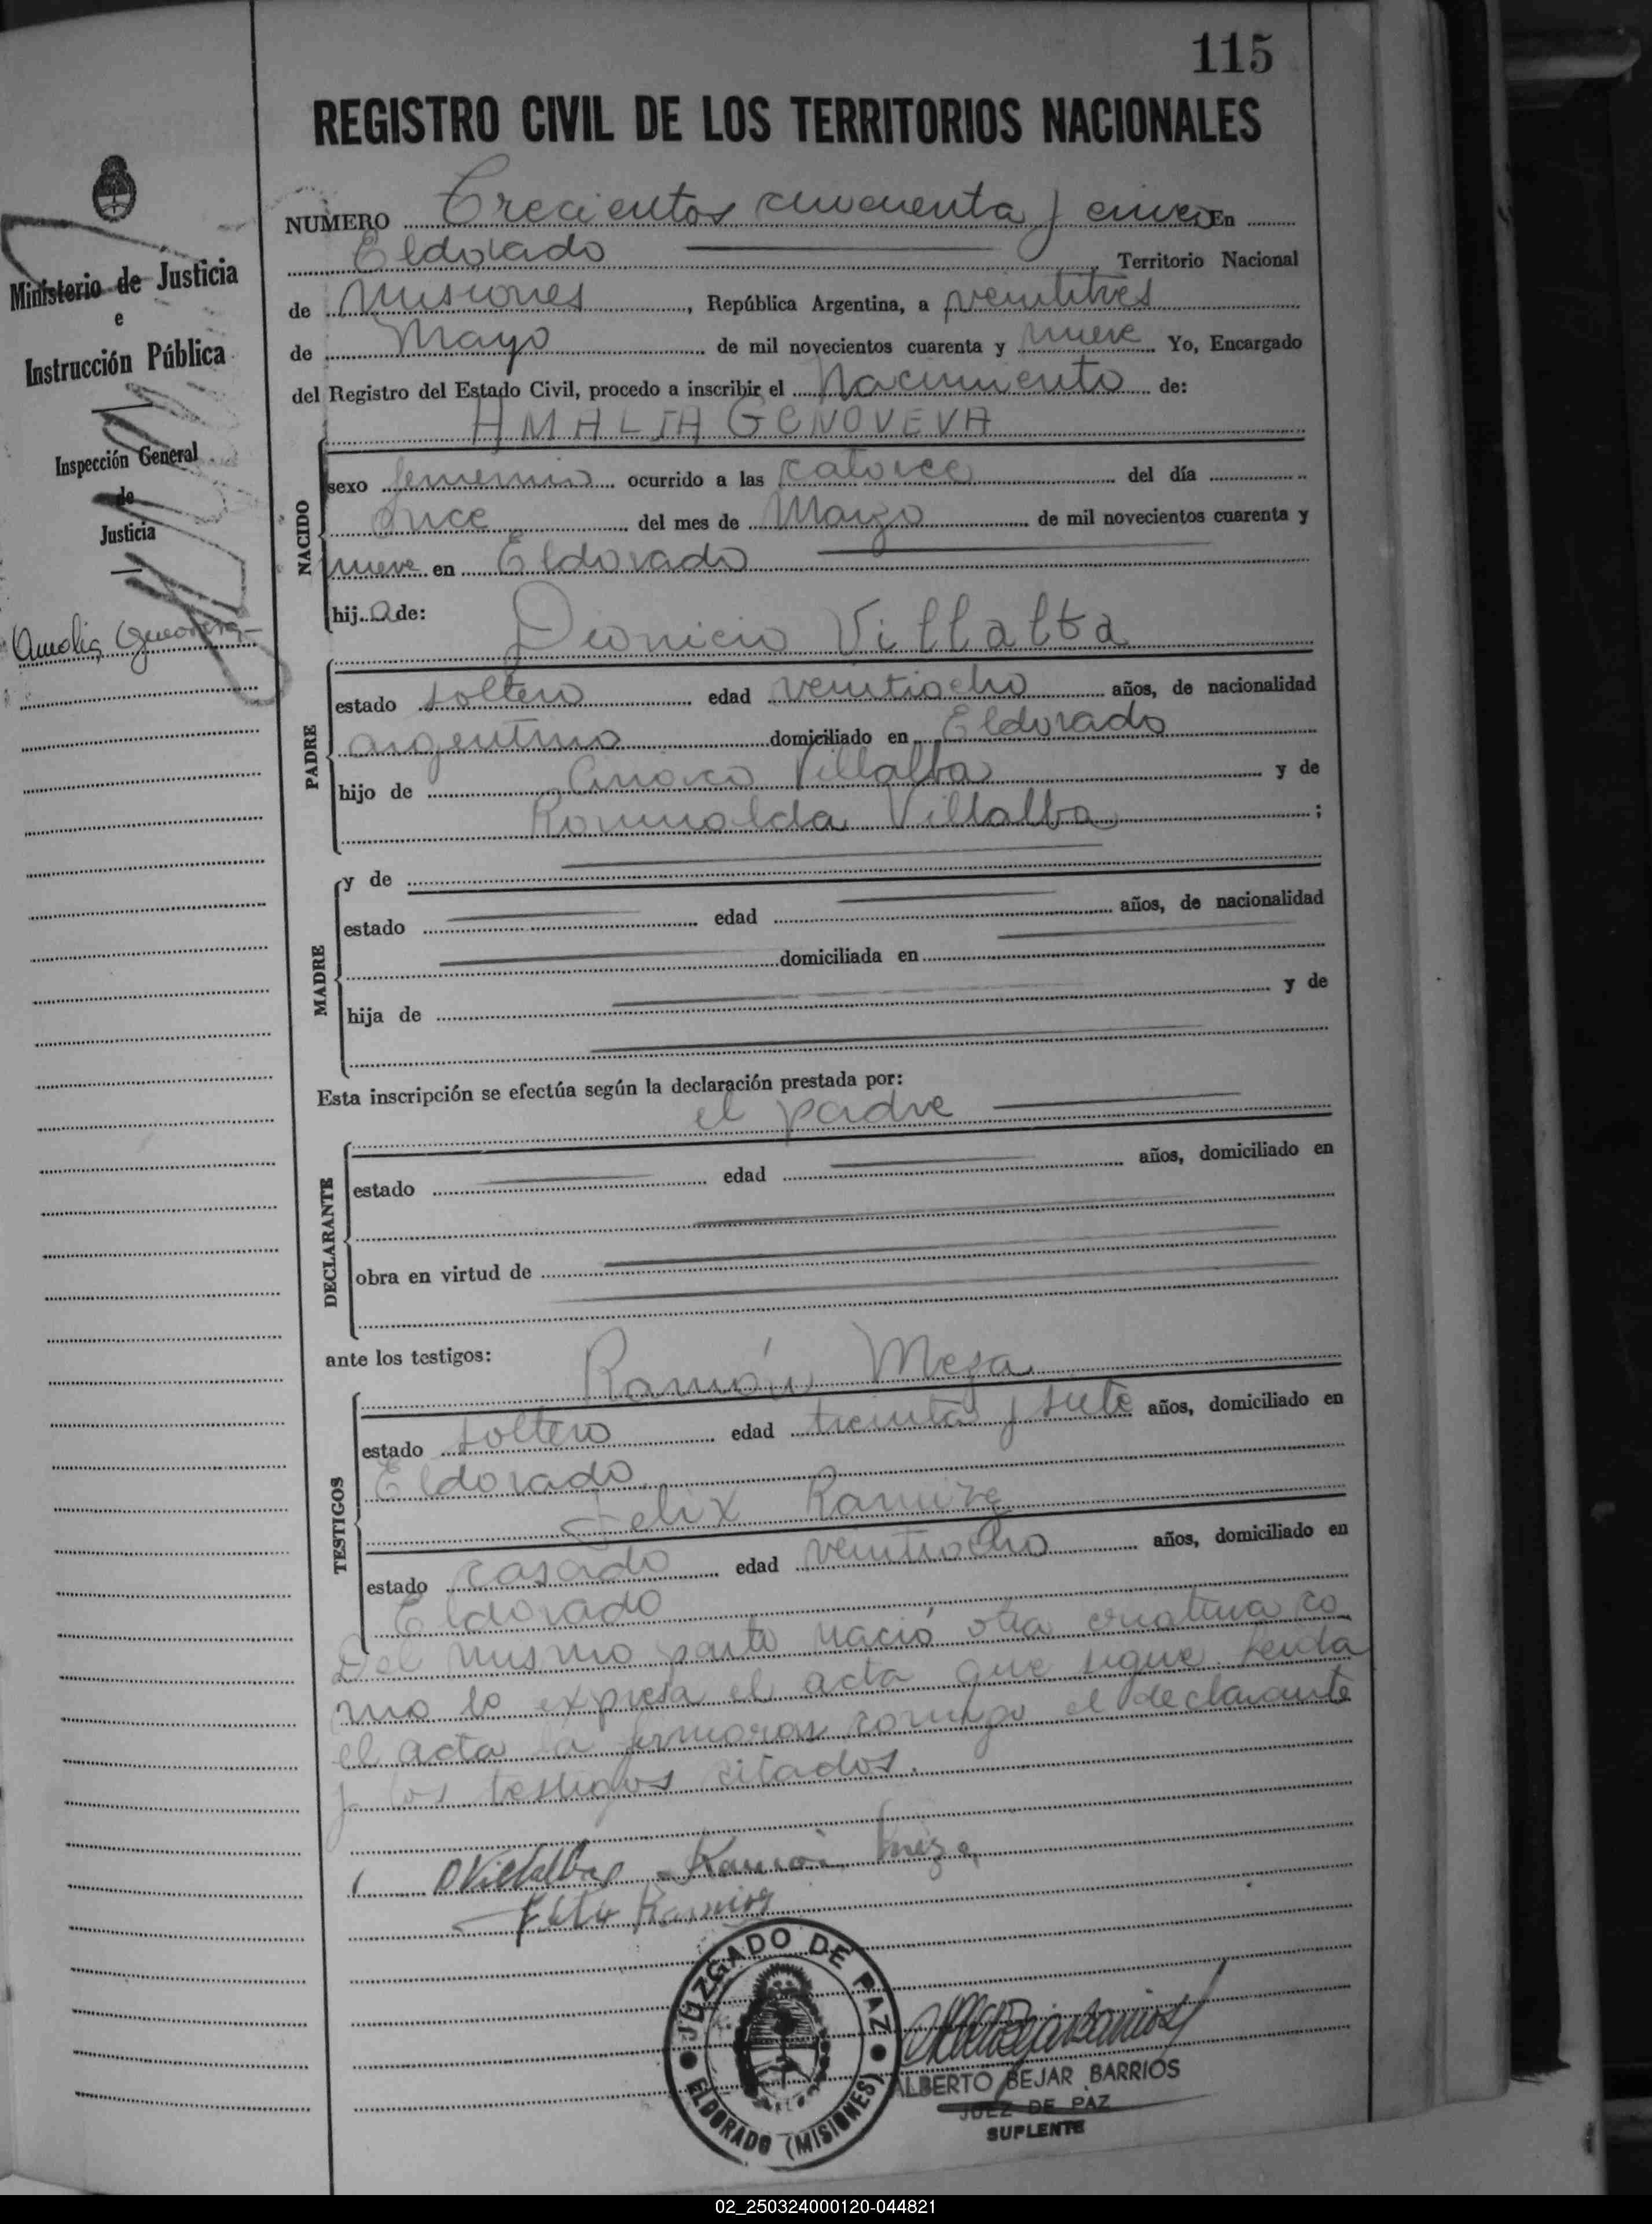 115
REGISTRO CIVIL DE LOS TERRITORIOS NACIONALES
Ministerio de Justicia
e
Instrucción Pública
Inspección General
de
Justicia
Amalia Genoveva
NUMERO Trecientos cincuenta y cinco En
Eldorado Territorio Nacional
de Misiones, República Argentina, a veintitres
de Mayo de mil novecientos cuarenta y nueve Yo, Encargado
del Registro del Estado Civil, procedo a inscribir el Nacimiento de:
AMALIA GENOVEVA
NACIDO
sexo femenino ocurrido a las catorce del día
once del mes de Marzo de mil novecientos cuarenta y
nueve en Eldorado
hija de:
Dionicio Villalba
PADRE
estado soltero edad veintiocho años, de nacionalidad
argentino domiciliado en Eldorado
hijo de Villalba y de
Romualda Villalba;
MADRE
y de
estado edad años, de nacionalidad
domiciliada en
hija de y de
Esta inscripción se efectúa según la declaración prestada por:
el padre
DECLARANTE
estado edad años, domiciliado en
obra en virtud de
ante los testigos:
Ramón Meza
TESTIGOS
estado soltero edad treinta y siete años, domiciliado en
Eldorado
Felix Ramirez
estado casado edad veintiocho años, domiciliado en
Eldorado
Del mismo parto nació otra criatura co
mo lo expresa el acta que sigue. Leida
el acta la firmaron conmigo el declarante
y los testigos citados.
D Villalba Ramón Meza
Felix Ramirez
JUZGADO DE PAZ
ELDORADO (MISIONES)
ALBERTO BEJAR BARRIOS
JUEZ DE PAZ
SUPLENTE
02_250324000120-044821